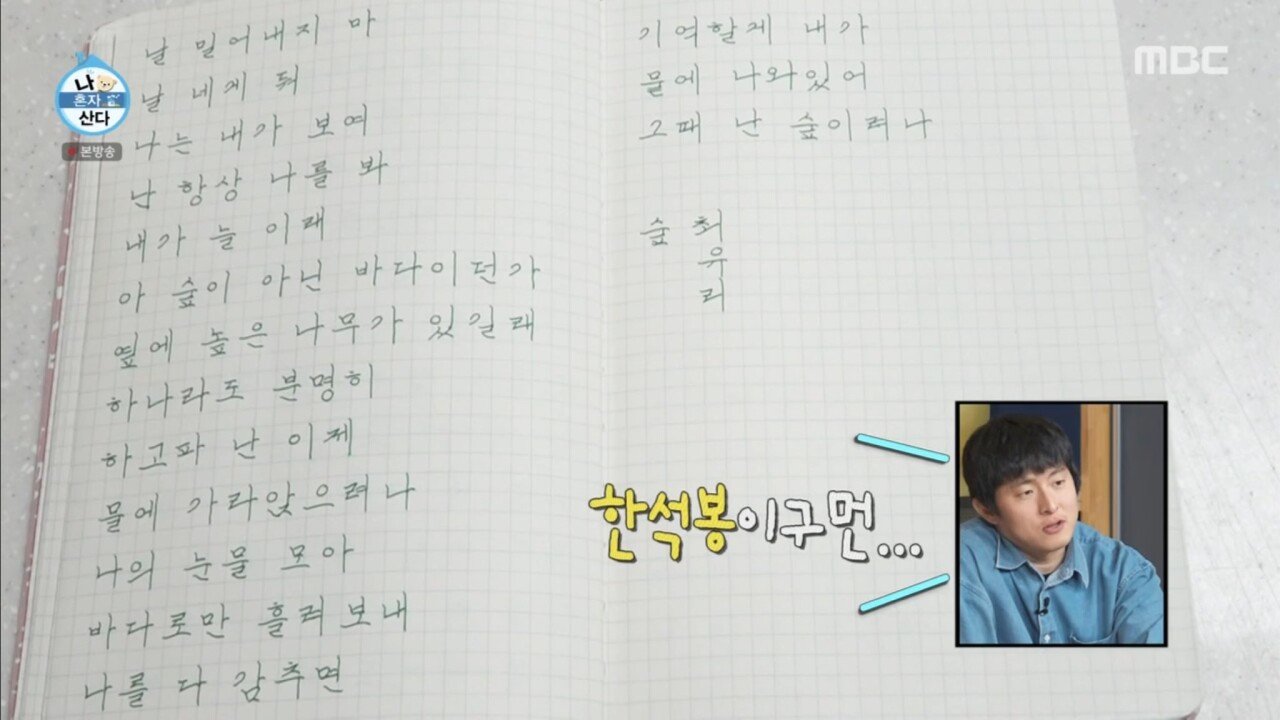 나
혼자
산다
본방송
MBC
날 밀어내지 마
날 네게 둬
나는 내가 보여
난 항상 나를 봐
내가 늘 이래
아 숲이 아닌 바다이던가
옆에 높은 나무가 있길래
하나라도 분명히
하고파 난 이제
물에 가라앉으려나
나의 눈물 모아
바다로만 흘려보내
나를 다 감추면
기억할게 내가
물에 나와있어
그때 난 숲이려나
숲 최
유
리
한석봉이구먼...